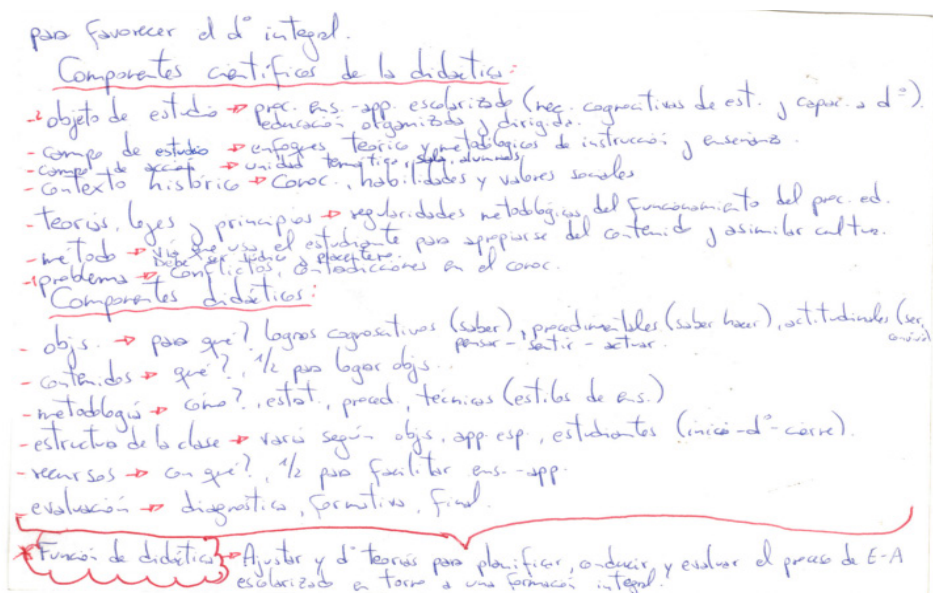 para favorecer el d° integral.
Componentes científicos de la didáctica:
-² objeto de estudio → proc. ens.-app. escolarizado (nec. cognoscitivas de est. y capac. a d°).
educación organizada y dirigida.
- campo de estudio → enfoques teórico y metodológicos de instrucción y enseñanza.
- campo de acción → unidad temática, sala, alumnado
- contexto histórico → conoc., habilidades y valores sociales
- teorías, leyes y principios → regularidades metodológicas del funcionamiento del proc. ed.
- método → vía que usa el estudiante para apropiarse del contenido y asimilar cultura.
Debe ser lúdico y placentero.
-¹ problema → conflictos, contradicciones en el conoc.
Componentes didácticos:
- objs. → para qué? logros cognoscitivos (saber), procedimentales (saber hacer), actitudinales (ser,
pensar - sentir - actuar.
- contenidos → qué?, ½ para lograr objs.
- metodología → cómo?, estrat., proced., técnicas (estilos de ens.)
- estructura de la clase → varía según objs, app esp., estudiantes (inicio-d°-cierre).
- recursos → con qué?, ½ para facilitar ens.-app.
- evaluación → diagnóstica, formativa, final.
* Función de didáctica → Ajustar y d° teorías para planificar, conducir, y evaluar el proceso de E-A
escolarizado en torno a una formación integral.